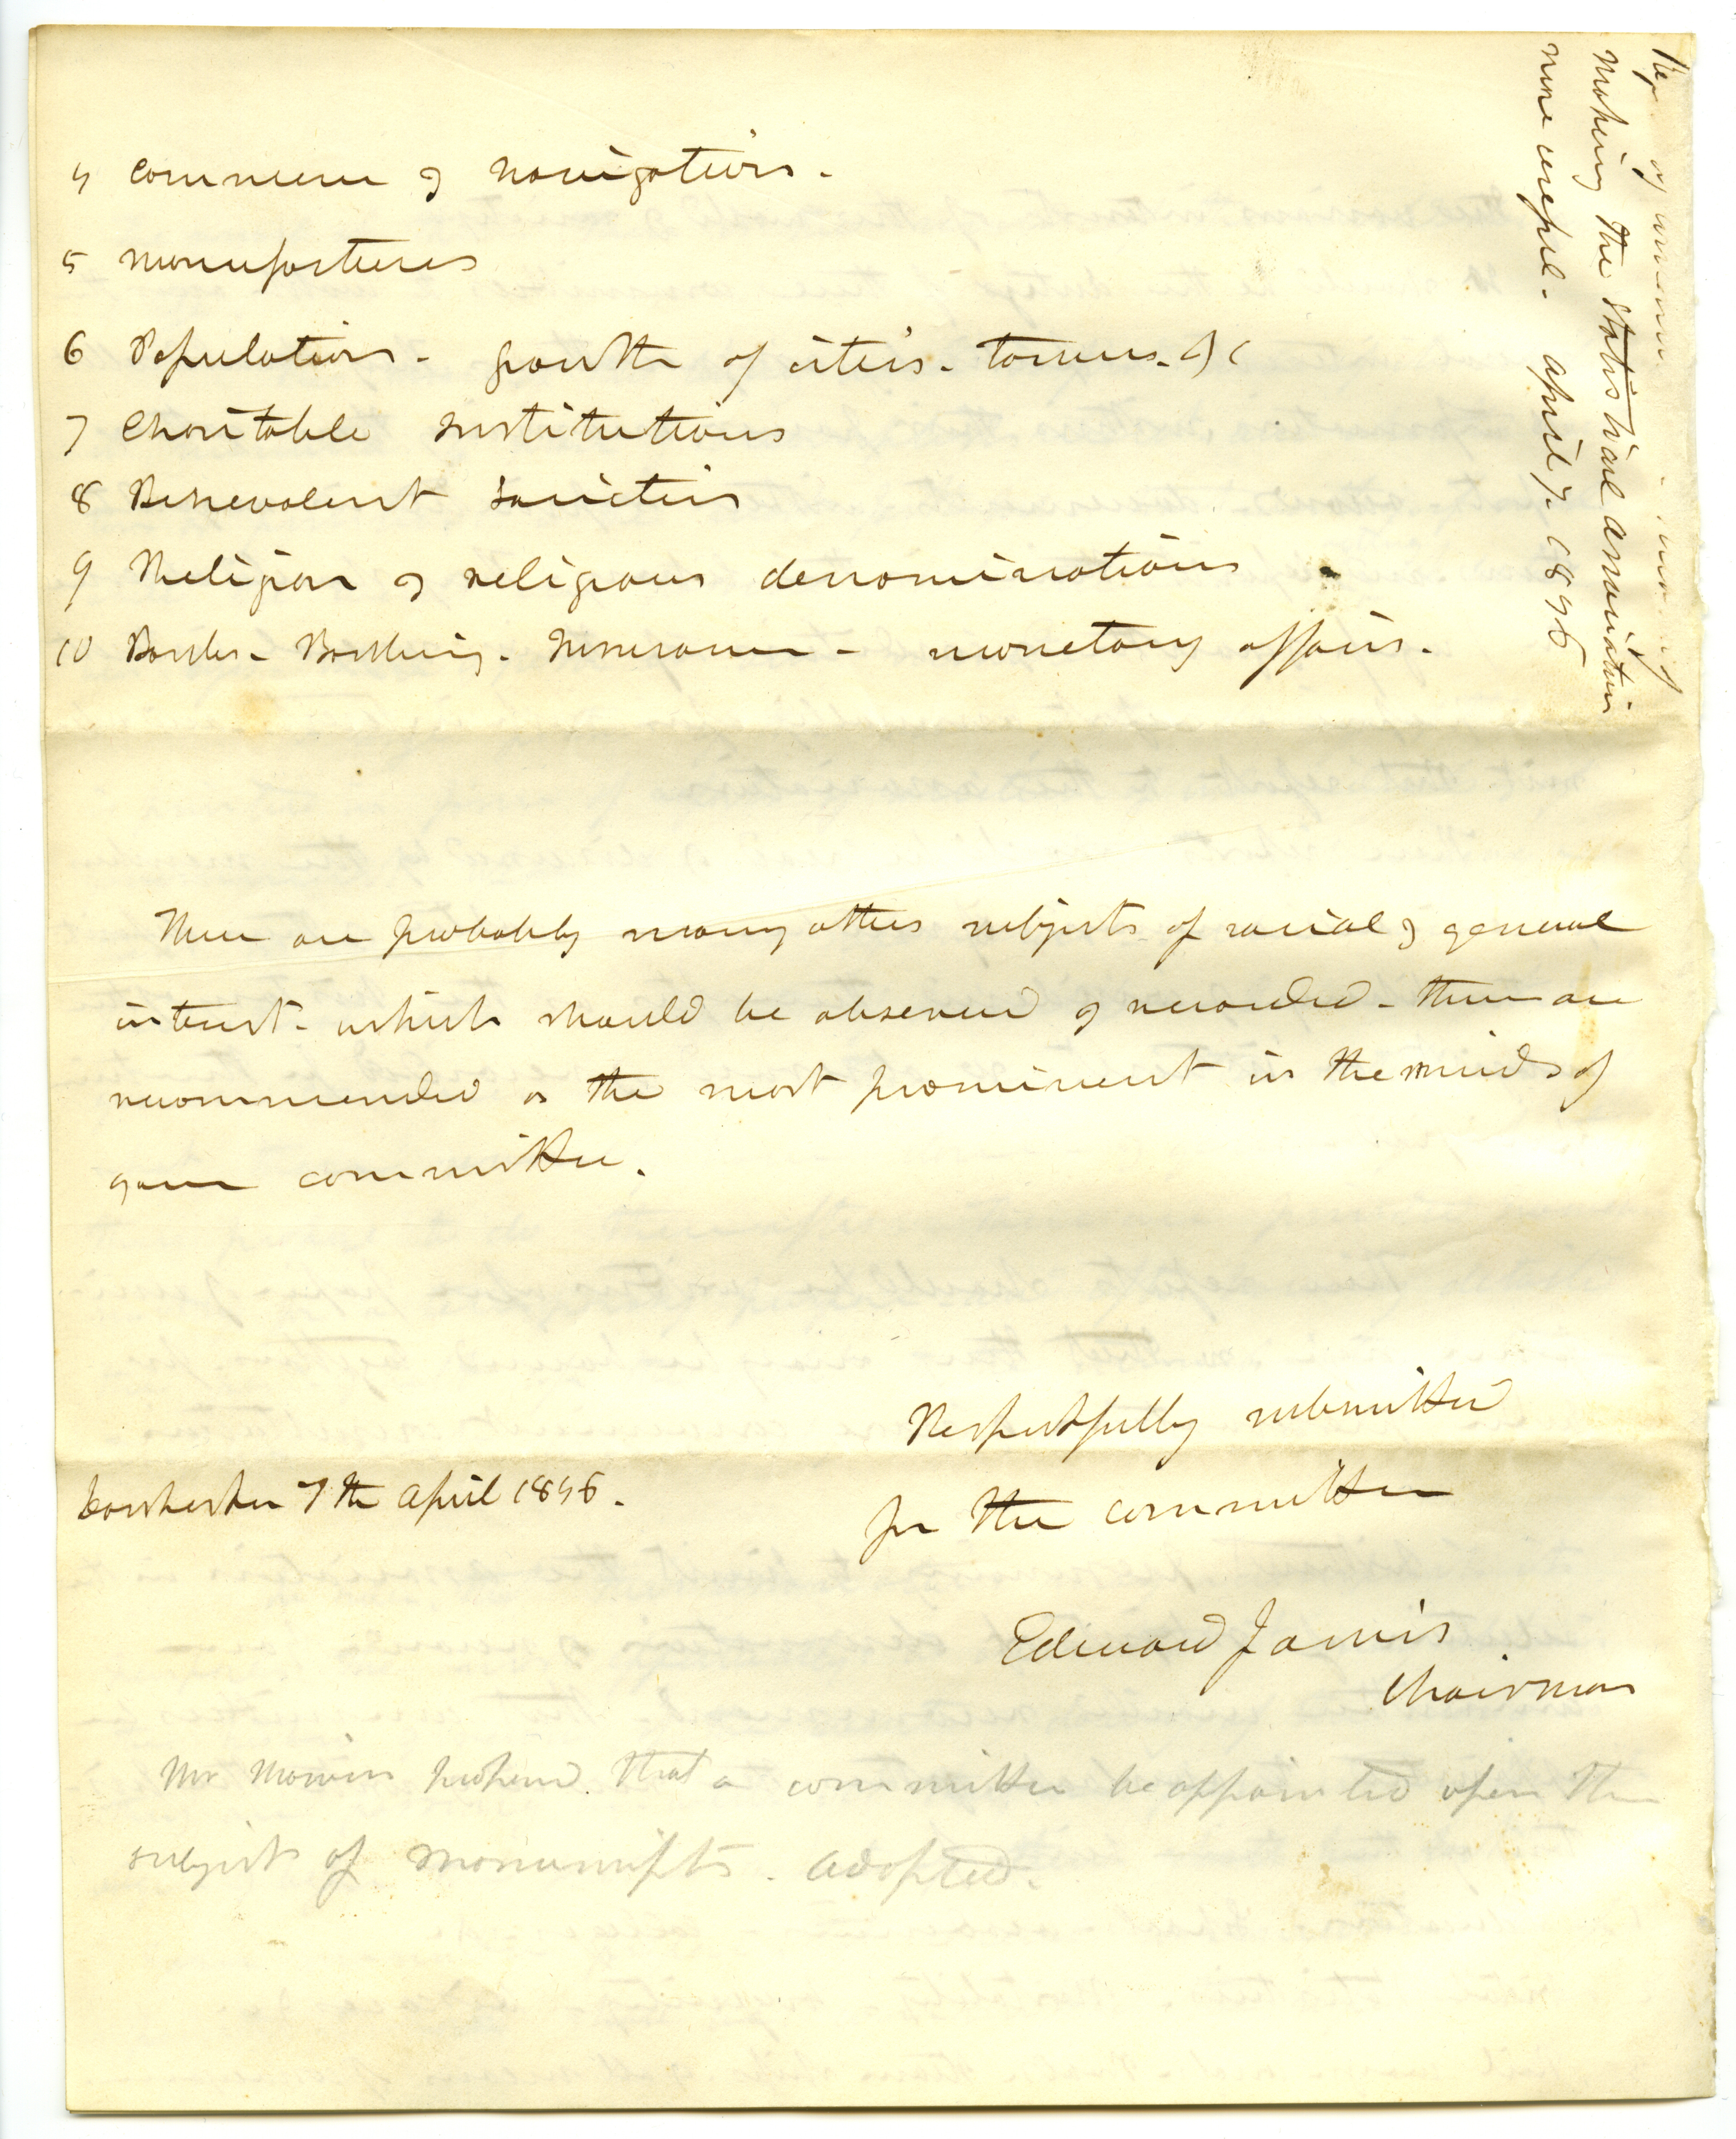 4 Commerce & Navigation -
5 Manufactures
6 Population - growth of cities - towns - &c
7 Charitable Institutions
8 Benevolent Societies
9 Religion & religious denominations
10 Banks - Banking - Insurance - monetary affairs -
There are probably many other subjects of social & general
interest - which should be observed & recorded - these are
recommended as the most prominent in the minds of
your committee.
Respectfully submitted
for the committee
Dorchester 7th April 1846.
Edward Jarvis
Chairman
Mr proposed that a committee be appointed upon the
subject of Manuscripts - Adopted -
Rep of
making the Statistical association
more useful - April 7. 1846